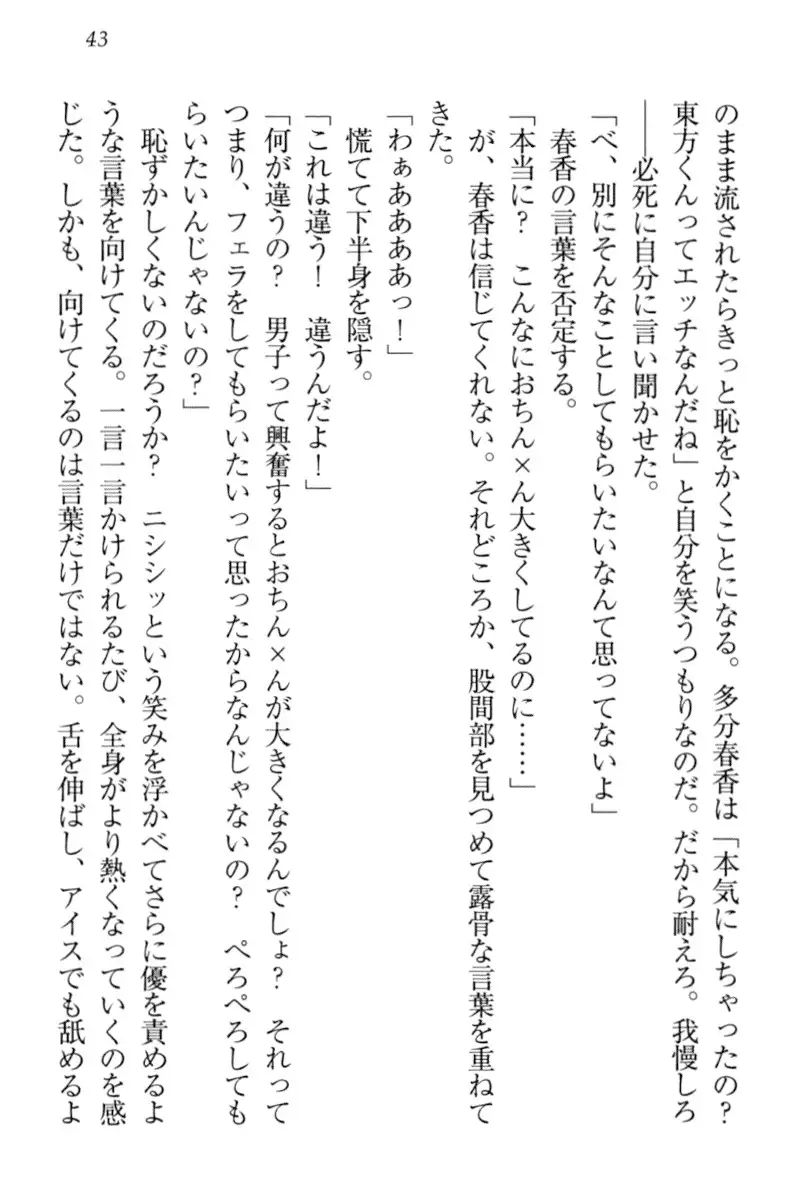 43
のまま流されたらきっと恥をかくことになる。多分春香は「本気にしちゃったの?
東方くんってエッチなんだね」と自分を笑うつもりなのだ。だから耐えろ。我慢しろ
――必死に自分に言い聞かせた。
「べ、別にそんなことしてもらいたいなんて思ってないよ」
春香の言葉を否定する。
「本当に? こんなにおちん×ん大きくしてるのに……」
が、春香は信じてくれない。それどころか、股間部を見つめて露骨な言葉を重ねて
きた。
「わぁああああっ!」
慌てて下半身を隠す。
「これは違う! 違うんだよ!」
「何が違うの? 男子って興奮するとおちん×んが大きくなるんでしょ? それって
つまり、フェラをしてもらいたいって思ったからなんじゃないの? ぺろぺろしても
らいたいんじゃないの?」
恥ずかしくないのだろうか? ニシシッという笑みを浮かべてさらに優を責めるよ
うな言葉を向けてくる。一言一言かけられるたび、全身がより熱くなっていくのを感
じた。しかも、向けてくるのは言葉だけではない。舌を伸ばし、アイスでも舐めるよ